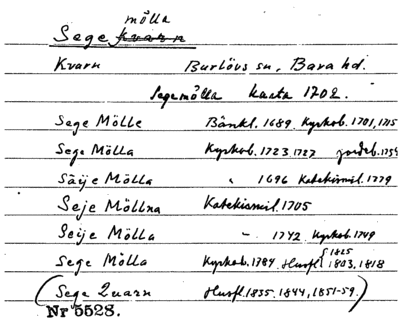 mölla
Sege kvarn
Kvarn Burlövs sn, Bara hd.
Segemölla karta 1702.
Sege Mölle Bänkl. 1689. Kyrkob. 1701, 1715
Sege Mölla Kyrkob. 1723. 1727 Jordeb. 1754
Säije Mölla " 1696 Katekismil. 1779
Seje Möllna Katekismil. 1705
Seije Mölla " 1742 Kyrkob. 1749
Sege Mölla Kyrkob. 1784 Husfl. 1803, 1818 1825
(Sege Quarn Husfl. 1835. 1844, 1851-59.)
Nr 5528.